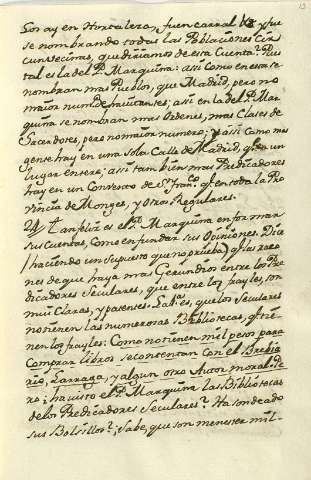 13
Los ay en Hortaleza, fuencarral &c. y fue
se nombrando todas las Poblaciones Cir
cunvecinas, que diriamos de esta Cuenta? Pues
tal es la del P. Marquina: asi como en esta se
nombran mas Pueblos, que Madrid, pero no
maior num.º de havitantes; asi en la del P. Mar
quina se nombran mas Ordenes, mas Clases de
Sacerdotes, pero no maior numero; y asi Como mas
gente hay en una sola Calle de Madrid, q.e en un
lugar entero; asi tambien mas Predicadores
hay en un Convento de S.n Fran.co q.e en toda la Pro
vincia de Monges, y otros Regulares.
24 Tan feliz es el P. Marquina en formar
sus cuentas, Como en fundar sus Opiniones. Dice
(haciendo un supuesto que no prueba) q.e las razo
nes de que haya mas Gerundios entre los Pre
dicadores Seculares, que entre los frayles, son
mui Claras, y patentes. La 1.ª es, que los Seculares
no tienen las numerosas Bibliotecas, q.e tie
nen los frayles: Como no tienen mil pesos para
Comprar libros se contentan con el Brebia
rio, Larraga, y algun otro Autor moral. Pe
ro ¿ha visto el P. Marquina las Bibliotecas
de los Predicadores Seculares? Ha sondeado
sus Bolsillos? ¿Sabe, que son menester mil